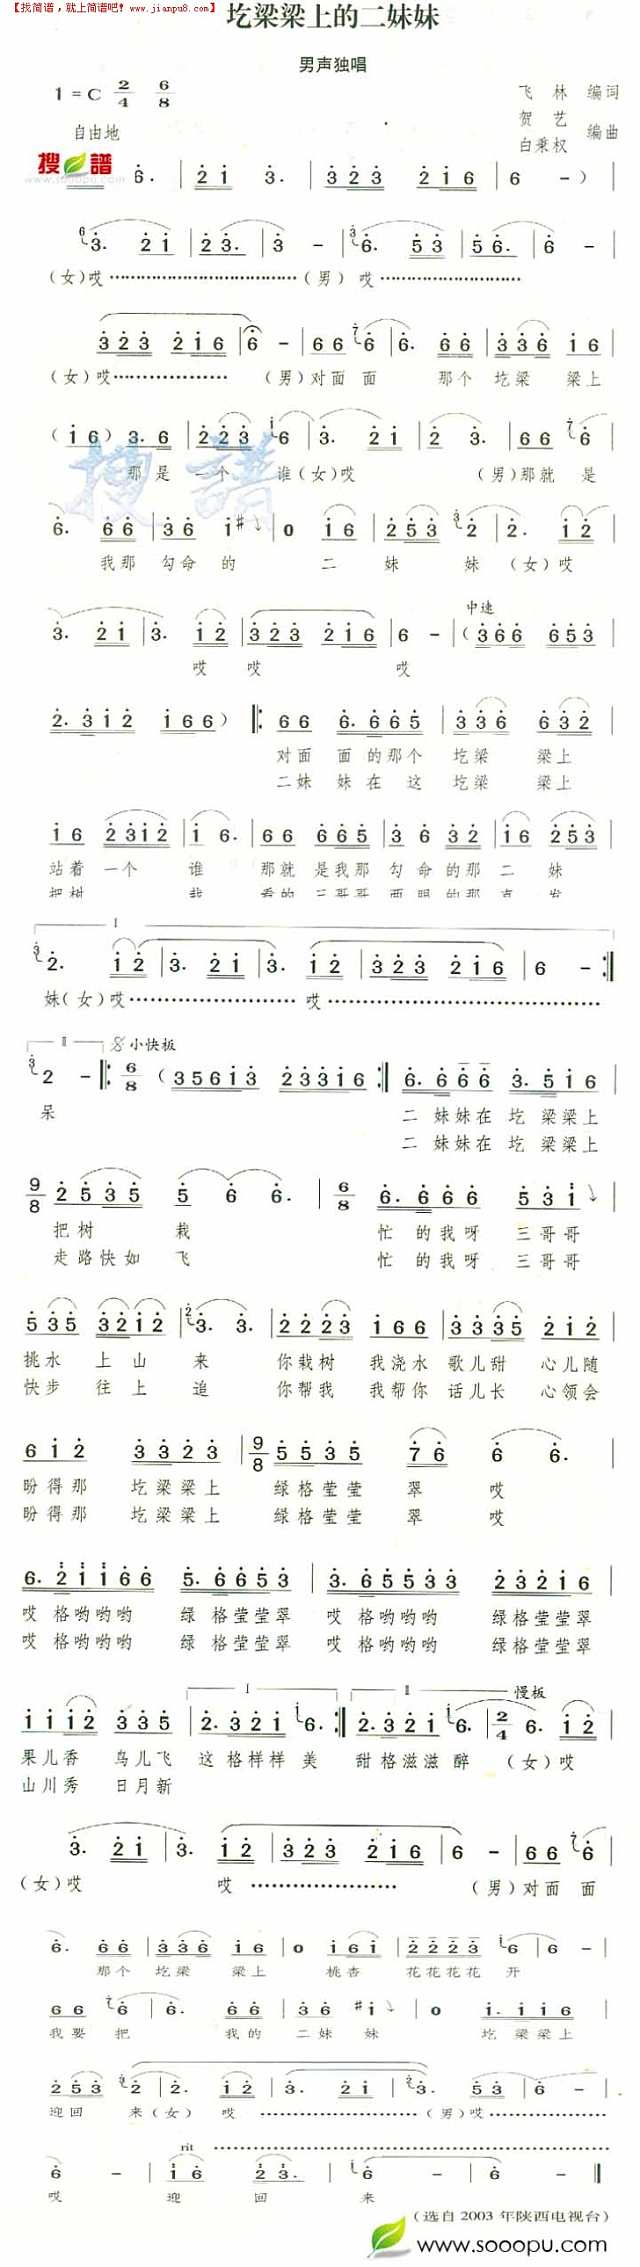 【找简谱，就上简谱吧! www.jianpu8.com】
圪梁梁上的二妹妹
男声独唱
1=C 2/4 6/8
飞 林 编词
贺 艺
白秉权 编曲
自由地
搜谱
www.sooopu.com
(女)哎 (男) 哎
(女)哎 (男)对面 面 那个 圪梁 梁上
那是 一个 谁(女)哎 (男)那就 是
搜谱
我那 勾命 的 二 妹 妹 (女)哎
中速
哎 哎 哎
对面 面的那个 圪梁 梁上
二妹 妹在 这 圪梁 梁上
站着 一个 谁 那就 是我那 勾命的那 二 妹
I
妹(女)哎 哎
II 小快板
呆 二妹妹在 圪梁梁上
二妹妹在 圪梁梁上
把树 栽 忙的我呀 三哥哥
走路快如 飞 忙的我呀 三哥哥
挑水 上山 来 你栽树 我浇水 歌儿甜 心儿随
快步 往上 追 你帮我 我帮你 话儿长 心领会
盼得那 圪梁梁上 绿格莹莹 翠 哎
盼得那 圪梁梁上 绿格莹莹 翠 哎
哎格哟哟哟 绿格莹莹翠 哎格哟哟哟 绿格莹莹翠
哎格哟哟哟 绿格莹莹翠 哎格哟哟哟 绿格莹莹翠
I II 慢板
果儿香 鸟儿飞 这格样样 美 甜格滋滋 醉 (女)哎
山川秀 日月新
(女)哎 哎 (男)对面 面
那个 圪梁 梁上 桃杏 花花花花 开
我要 把 我的 二妹 妹 圪梁梁上
迎回 来(女) 哎 (男)哎
rit
哎 迎 回 来
(选自 2003 年陕西电视台)
www.sooopu.com